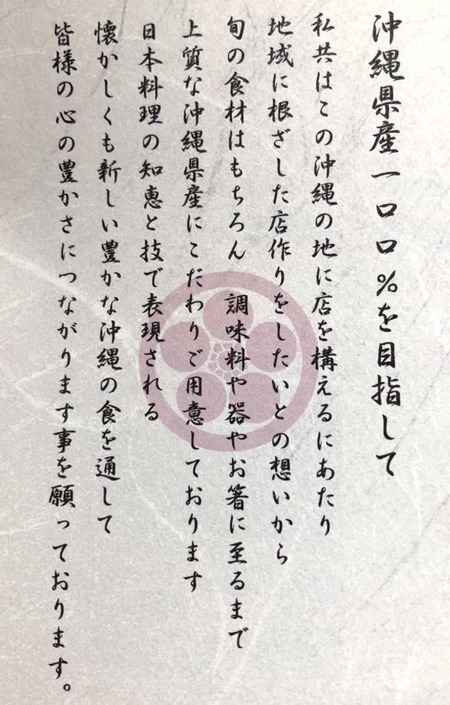 沖縄県産一〇〇%を目指して
私共はこの沖縄の地に店を構えるにあたり
地域に根ざした店作りをしたいとの想いから
旬の食材はもちろん 調味料や器やお箸に至るまで
上質な沖縄県産にこだわりご用意しております
日本料理の知恵と技で表現される
懐かしくも新しい豊かな沖縄の食を通して
皆様の心の豊かさにつながります事を願っております。